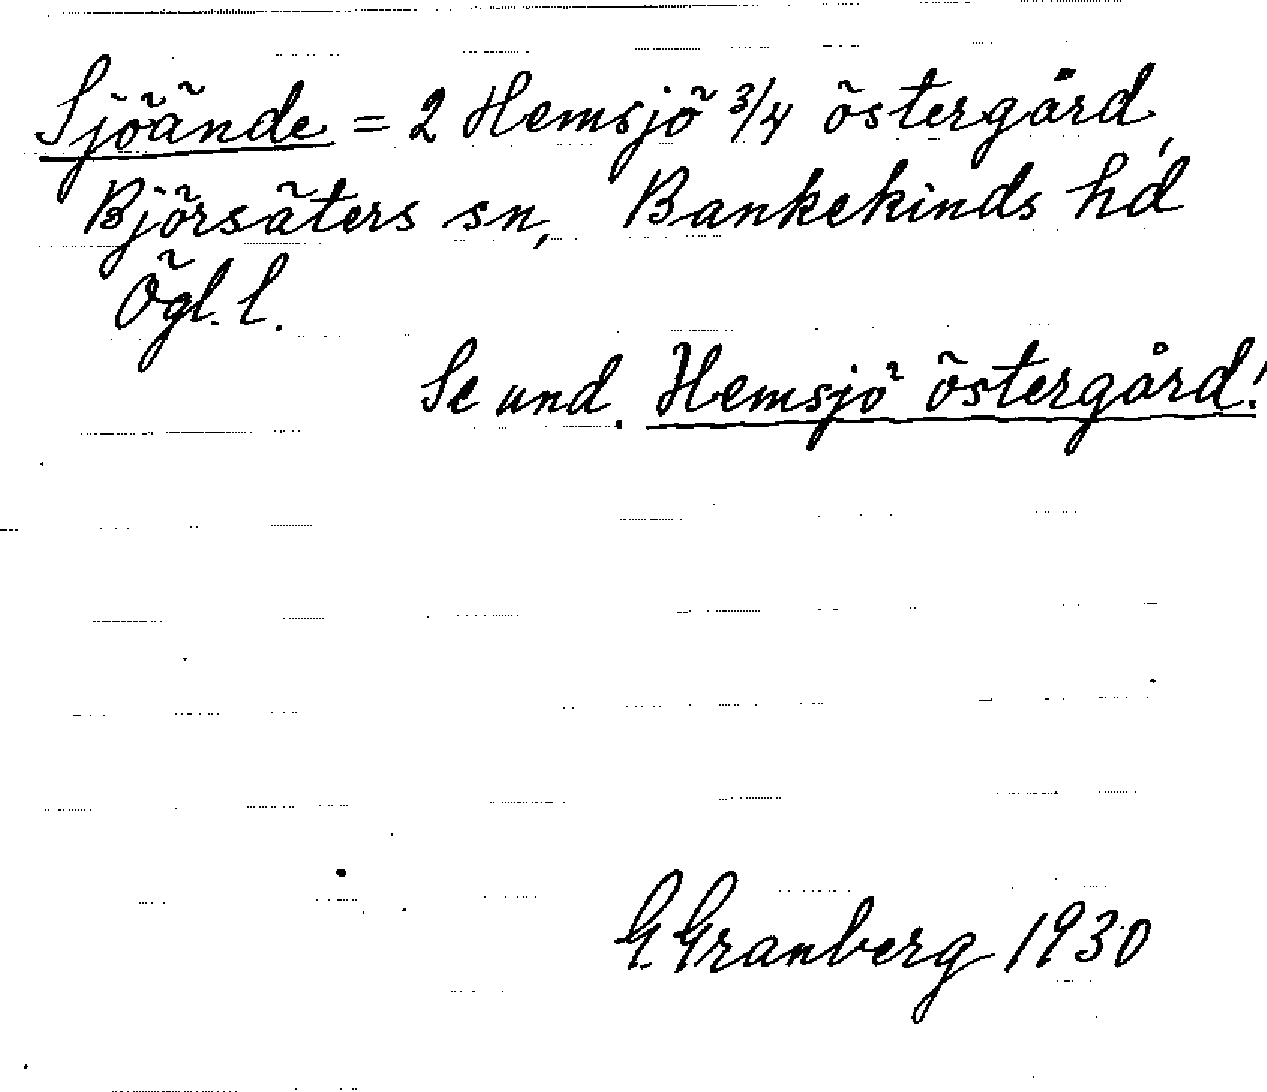 Sjöände = 2 Hemsjö 3/4 östergård,
Björsäters sn, Bankekinds hd
Ögl. l.
Se und. Hemsjö östergård!
G. Granberg 1930